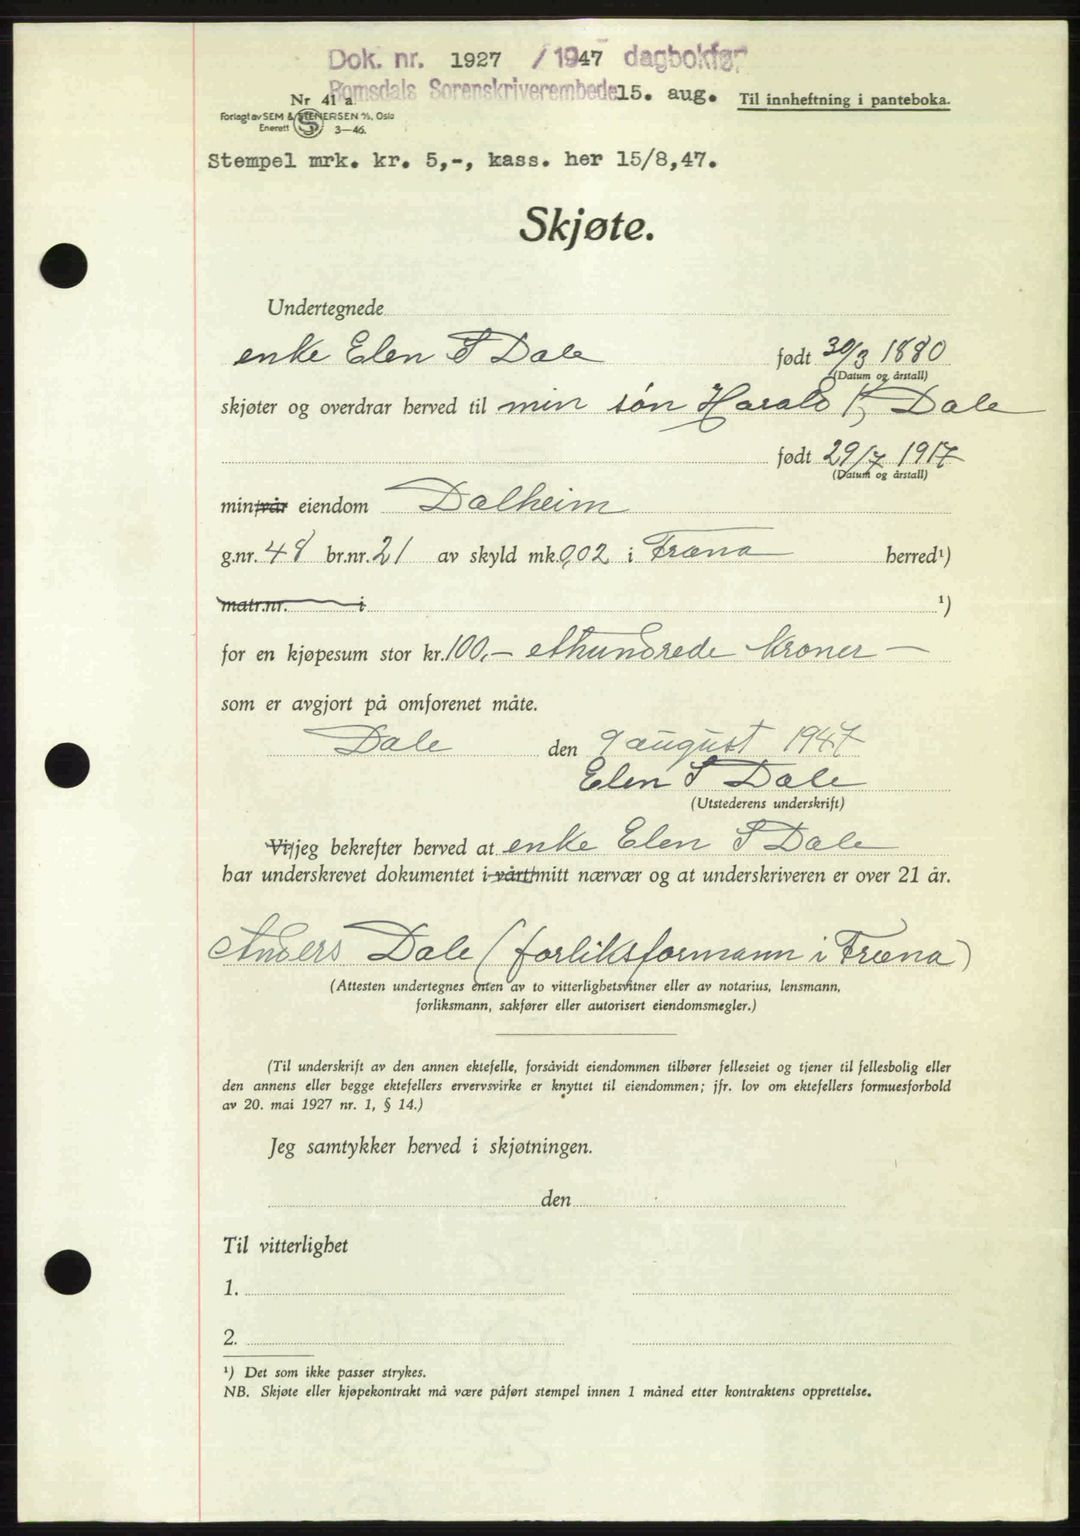 Dok. nr. 1927 / 1947 dagbokfør
Nr 41 a. Romsdals Sorenskriverembede 15. aug. Til innheftning i panteboka.
Forlagt av SEM & STENERSEN A/S, Oslo
Enerett 3—46.
Stempel mrk. kr. 5,-, kass. her 15/8,47.
Skjøte.
Undertegnede
enke Elen S Dale født 30/3 1880
(Datum og årstall)
skjøter og overdrar herved til min søn Harald K Dale
født 29/7 1917
(Datum og årstall)
min/vår eiendom Dalheim
g.nr. 48 br.nr. 21 av skyld mk. 0,02 i Fræna herred¹)
matr.nr. i ¹)
for en kjøpesum stor kr. 100,- ethundrede kroner —
som er avgjort på omforenet måte.
Dale den 9 august 1947
Elen S Dale
(Utstederens underskrift)
Vi/jeg bekrefter herved at enke Elen S Dale
har underskrevet dokumentet i vårt/mitt nærvær og at underskriveren er over 21 år.
Anders Dale (forliksformann i Fræna)
(Attesten undertegnes enten av to vitterlighetsvitner eller av notarius, lensmann,
forliksmann, sakfører eller autorisert eiendomsmegler.)
(Til underskrift av den annen ektefelle, forsåvidt eiendommen tilhører felleseiet og tjener til fellesbolig eller
den annens eller begge ektefellers ervervsvirke er knyttet til eiendommen; jfr. lov om ektefellers formuesforhold
av 20. mai 1927 nr. 1, § 14.)
Jeg samtykker herved i skjøtningen.
den
Til vitterlighet
1.
2.
¹) Det som ikke passer strykes.
NB. Skjøte eller kjøpekontrakt må være påført stempel innen 1 måned etter kontraktens opprettelse.